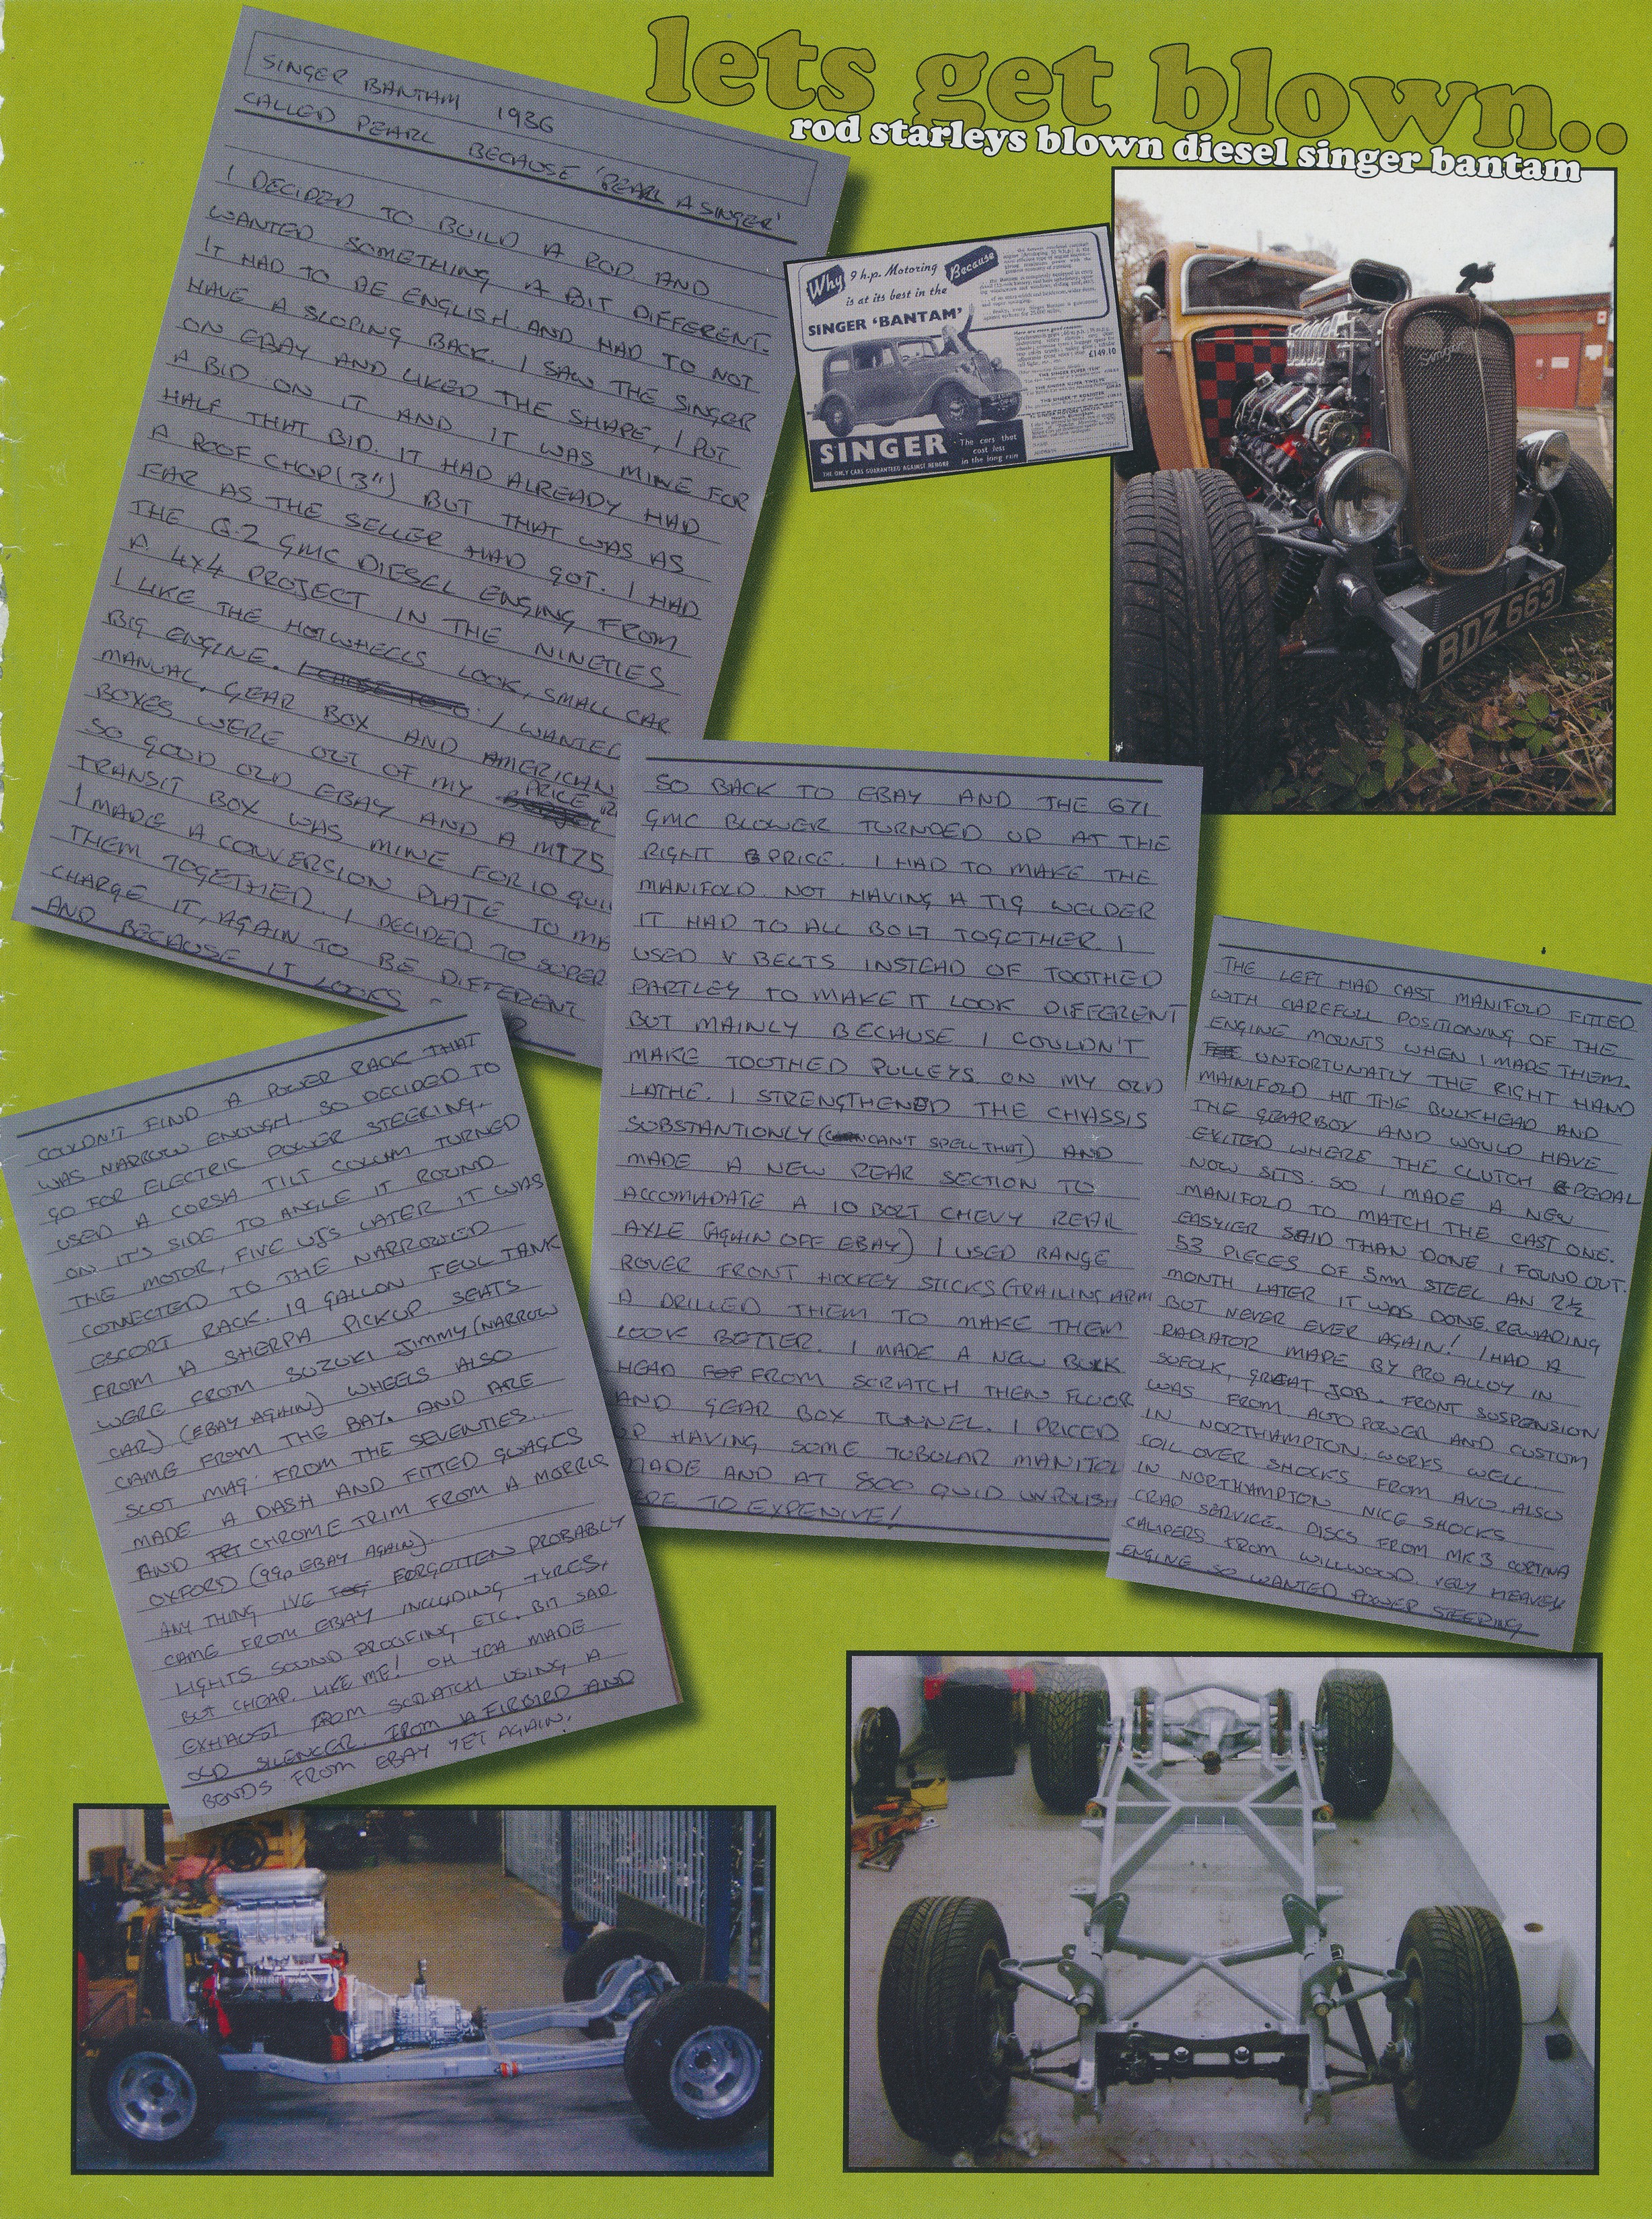 lets get blown..
rod starleys blown diesel singer bantam
SINGER BANTAM 1936
CALLED PEARL BECAUSE 'PEARL A SINGER'
I DECIDED TO BUILD A ROD AND
WANTED SOMETHING A BIT DIFFERENT.
IT HAD TO BE ENGLISH AND HAD TO NOT
HAVE A SLOPING BACK. I SAW THE SINGER
ON EBAY AND LIKED THE SHAPE, I PUT
A BID ON IT AND IT WAS MINE FOR
HALF THAT BID. IT HAD ALREADY HAD
A ROOF CHOP (3") BUT THAT WAS AS
FAR AS THE SELLER HAD GOT. I HAD
THE 6.2 GMC DIESEL ENGING FROM
A 4x4 PROJECT IN THE NINETIES
I LIKE THE HOTWHEELS LOOK, SMALL CAR
BIG ENGINE. I WANTED
MANUAL GEAR BOX AND AMERICAN
BOXES WERE OUT OF MY PRICE
SO GOOD OLD EBAY AND A MT75
TRANSIT BOX WAS MINE FOR 10 QUI
I MADE A CONVERSION PLATE TO MA
THEM TOGETHER. I DECIDED TO SUPER
CHARGE IT, AGAIN TO BE DIFFERENT
AND BECAUSE IT LOOKS
Why 9 h.p. Motoring
is at its best in the
SINGER 'BANTAM'
Because
£149.10
SINGER
The cars that
cost less
in the long run
THE ONLY CARS GUARANTEED AGAINST REBORE
Singer
BDZ 663
SO BACK TO EBAY AND THE 671
GMC BLOWER TURNDED UP AT THE
RIGHT PRICE. I HAD TO MAKE THE
MANIFOLD. NOT HAVING A TIG WELDER
IT HAD TO ALL BOLT TOGETHER. I
USED V BELTS INSTEAD OF TOOTHED
PARTLEY TO MAKE IT LOOK DIFFERENT
BUT MAINLY BECAUSE I COULDN'T
MAKE TOOTHED PULLEYS ON MY OLD
LATHE. I STRENGTHENED THE CHASSIS
SUBSTANTIONLY (CAN'T SPELL THAT) AND
MADE A NEW REAR SECTION TO
ACCOMADATE A 10 BOLT CHEVY REAR
AXLE (AGAIN OFF EBAY) I USED RANGE
ROVER FRONT HOCKEY STICKS (TRAILING ARM
A DRILLED THEM TO MAKE THEM
LOOK BETTER. I MADE A NEW BULK
HEAD FROM SCRATCH THEN FLUOR
AND GEAR BOX TUNNEL. I PRICED
UP HAVING SOME TUBULAR MANIFOL
MADE AND AT 800 QUID UNPOLISH
ERE TO EXPENIVE!
THE LEFT HAD CAST MANIFOLD FITTED
WITH CAREFULL POSITIONING OF THE
ENGINE MOUNTS WHEN I MADE THEM.
UNFORTUNATLY THE RIGHT HAND
MAINIFOLD HIT THE BULKHEAD AND
THE GEARBOX AND WOULD HAVE
EXITED WHERE THE CLUTCH PEDAL
NOW SITS. SO I MADE A NEW
MANIFOLD TO MATCH THE CAST ONE.
EASYIER SAID THAN DONE I FOUND OUT.
53 PIECES OF 5mm STEEL AN 2½
MONTH LATER IT WAS DONE, REWARING
BUT NEVER EVER AGAIN! I HAD A
RADIATOR MADE BY PRO ALLOY IN
SUFOLK, GREAT JOB. FRONT SUSPENSION
WAS FROM AUTO POWER AND CUSTOM
IN NORTHAMPTON, WORKS WELL.
COIL OVER SHOCKS FROM AVO, ALSO
IN NORTHAMPTON NICE SHOCKS
CRAP SERVICE. DISCS FROM MK3 CORTINA
CALIPERS FROM WILLWOOD. VERY HEAVEY
ENGINE SO WANTED POWER STEERING
COULDN'T FIND A POWER RACK THAT
WAS NARROW ENOUGH. SO DECIDED TO
GO FOR ELECTRIC POWER STEERING.
USED A CORSA TILT COLUM TURNED
ON IT'S SIDE TO ANGLE IT ROUND
THE MOTOR, FIVE UJS LATER IT WAS
CONNECTED TO THE NARROWED
ESCORT RACK. 19 GALLON FEUL TANK
FROM A SHERPA PICKUP SEATS
WERE FROM SUZUKI JIMMY (NARROW
CAR) (EBAY AGAIN) WHEELS ALSO
CAME FROM THE BAY. AND ARE
SLOT MAG FROM THE SEVENTIES.
MADE A DASH AND FITTED GUAGES
AND CHROME TRIM FROM A MORRIS
OXFORD (99p EBAY AGAIN).
ANY THING IVE FORGOTTEN PROBABLY
CAME FROM EBAY INCLUDING TYRES,
LIGHTS SOUND PROOFING ETC. BIT SAD
BUT CHEAP. LIKE ME! OH YEA MADE
EXHAUST FROM SCRATCH USING A
OLD SILENCER FROM A FIRBIRD AND
BENDS FROM EBAY YET AGAIN.